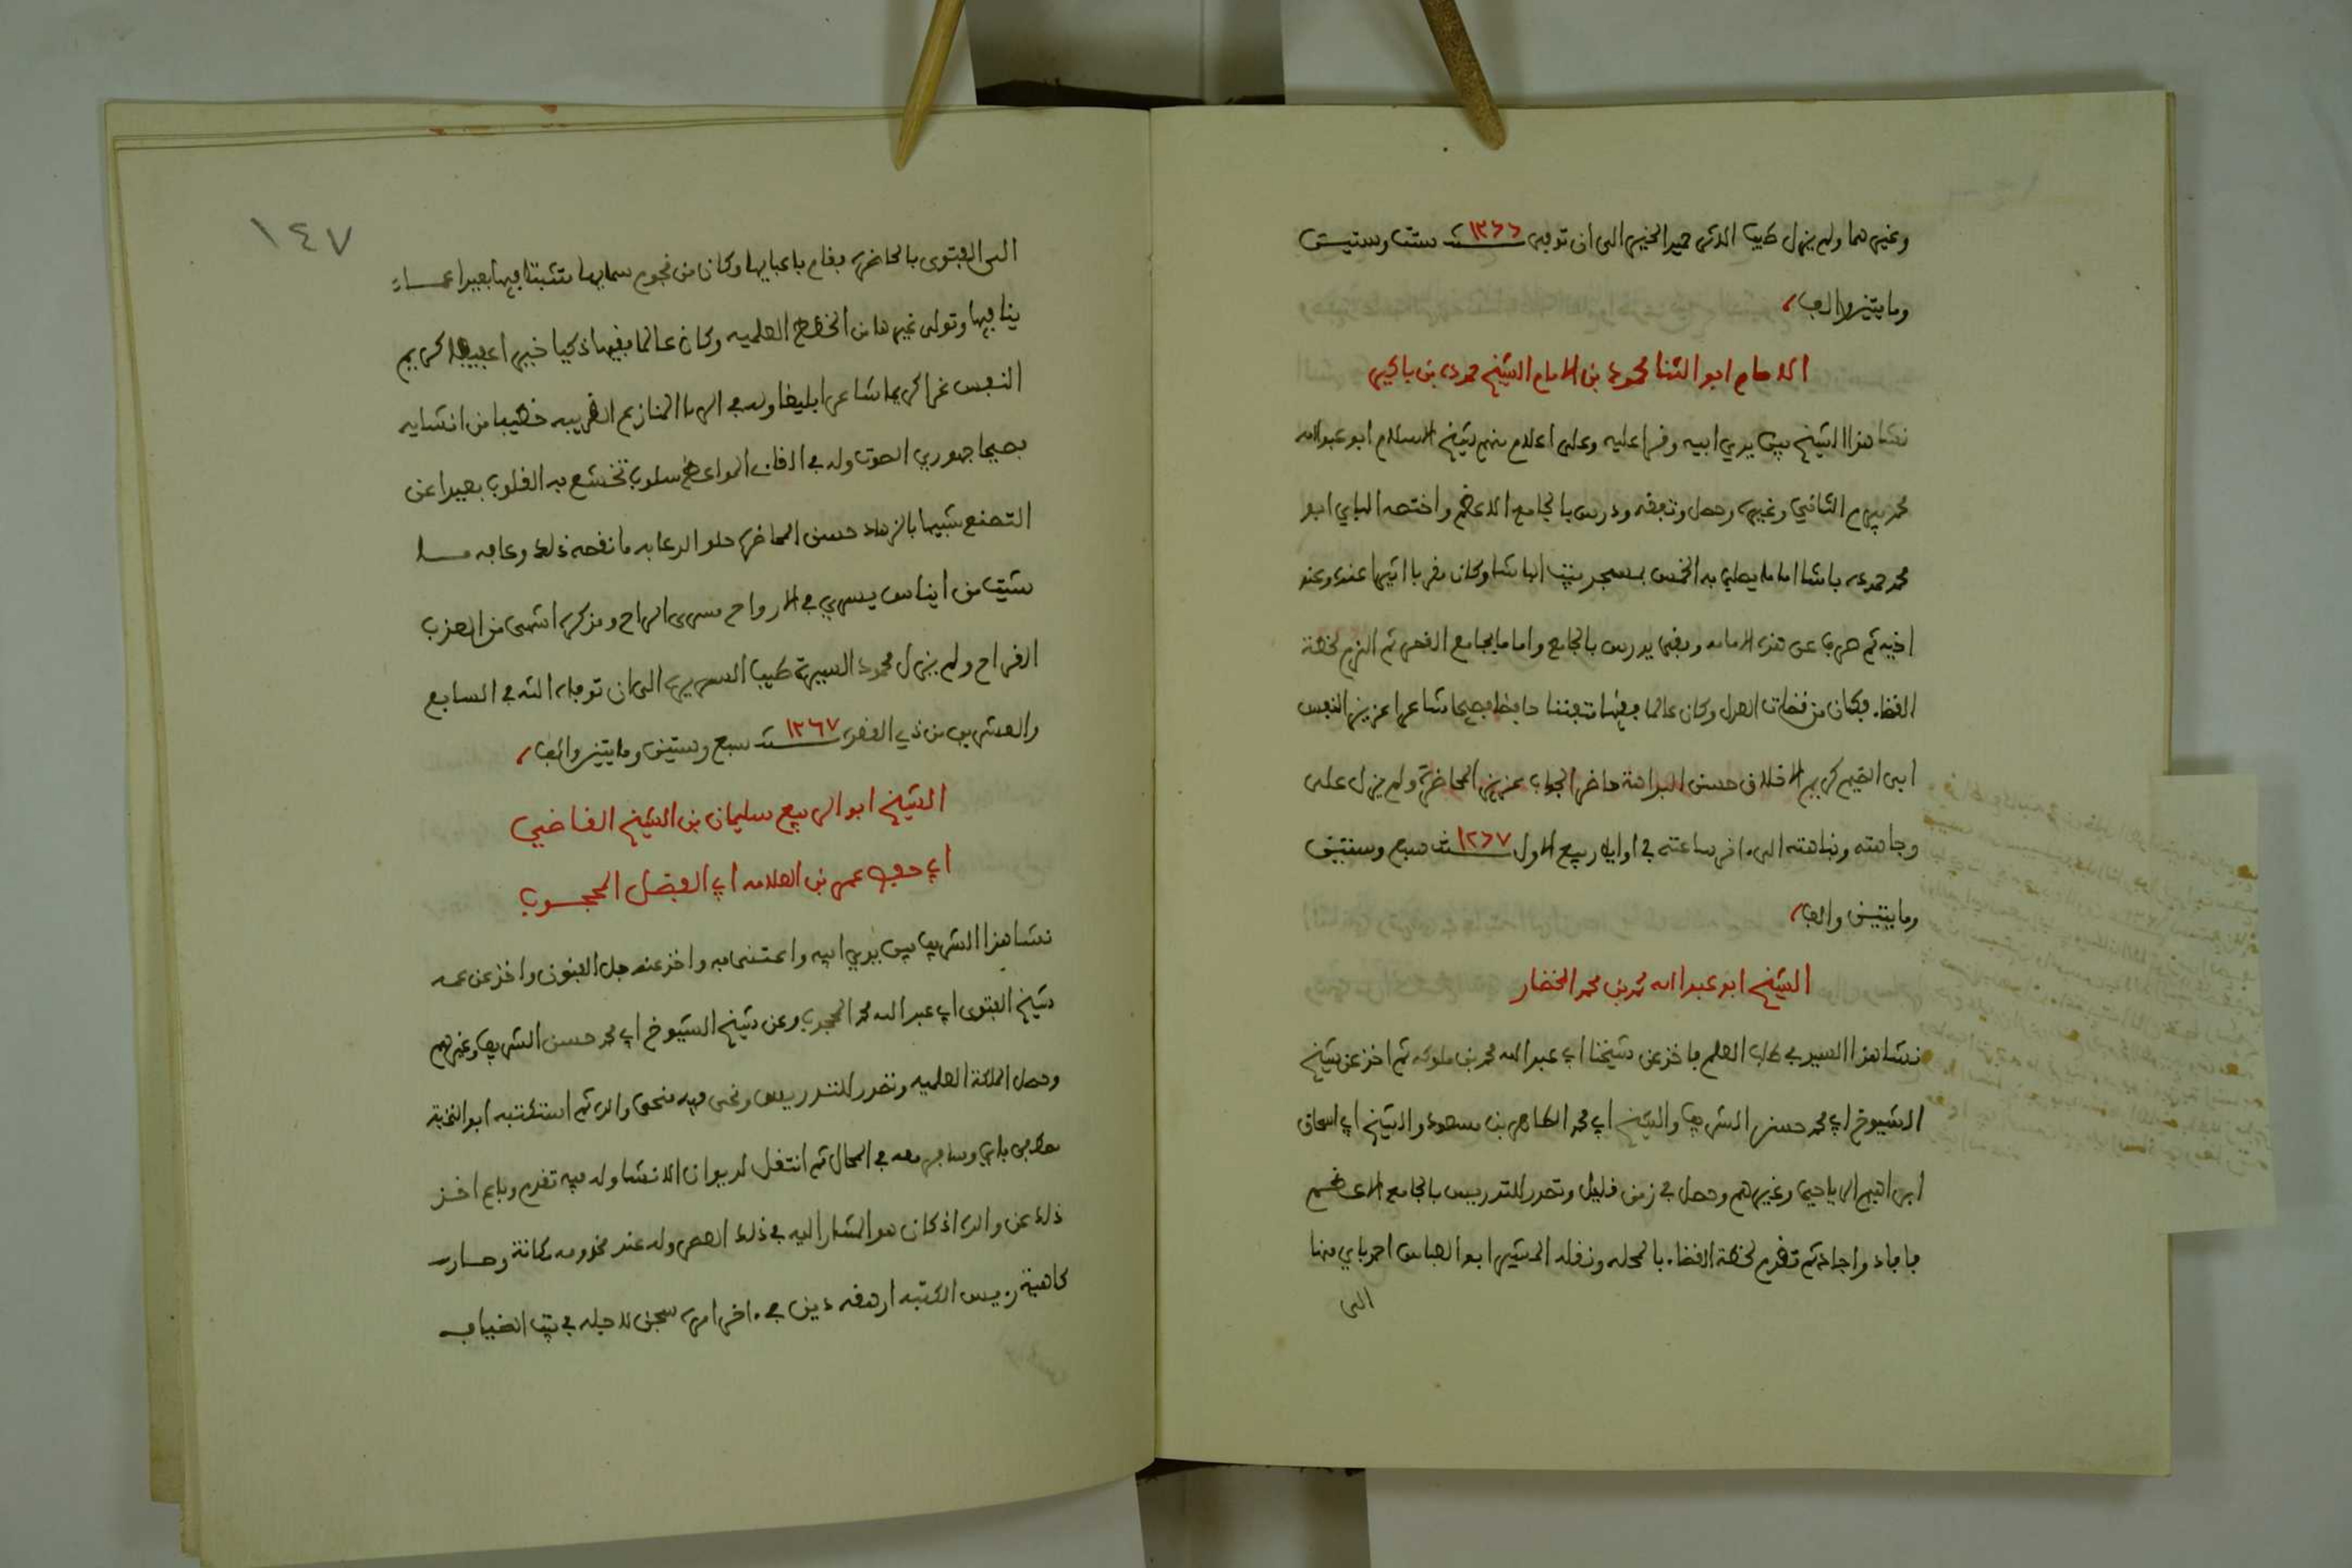 وغيرهما ولم يزل طيب الذكر حميد الخبر الى ان توفي سنة ١٢٦٦ ست وستين
ومايتين والف
الامام ابو الثنا محمود بن الامام الشيخ حموده بن باكير
نشا هذا الشيخ بين يدي ابيه وقرا عليه وعلى اعلام منهم شيخ الاسلام ابو عبد الله
محمد بيرم الثاني وغيره وحصل وتفقه ودرس بالجامع الاعظم واختصه الباي ابو
محمد حموده باشا اماما يصلي به الخمس بمسجد بيت الباشا وكان مقربا اثيرا عنده وعند
اخيه ثم صرف عن هذه الامامه وبقى يدرس بالجامع واماما بجامع القصر ثم الزم لخطة
القضاء فكان من قضاة العدل وكان عالما فقيها متفننا حافظا فصيحا شاعرا عزيز النفس
ابى الضيم كريم الاخلاق حسن البراهة حاضر الجواب عزيز المحاضرة ولم يزل على
وجاهته ونباهته الى اخر ساعته في اوايل ربيع الاول سنة ١٢٦٧ سبع وستين
ومايتين والف
الشيخ ابو عبد الله محمد بن محمد الخضار
نشا هذا السيد في طلب العلم فاخذ عن شيخنا ابي عبد الله محمد بن ملوكه ثم اخذ عن شيخ
الشيوخ ابي محمد حسن الشريف والشيخ ابي محمد الطاهر بن مسعود والشيخ ابي اسحاق
ابراهيم الرياحي وغيرهم وحصل في زمن قليل وتصدر للتدريس بالجامع الاعظم
فافاد واجاد ثم تقدم لخطة القضاء بالمحله ونقله المشير ابو العباس احمد باي منها
الى
١٤٧
الى الفتوى بالحاضره فقام باعبايها وكان من نجوم سمايها متثبتا فيها بعيدا عمـا
ينافيها وتولى غيرها من الخطط العلميه وكان عالما فقيها ذكيا خيرا عفيفا كريم
النفس شاعرا بليغا وله في الغريبه خطيبا من انشايه
فصيحا جهوري الصوت وله في القاء المواعظ سلوب تخشع به القلوب بعيدا عن
التصنع شبيها بالزهاد حسن المحاضره حلو الدعابه ما نقصه ذلك وعابه مـا
شيت من ايناس يسري في الارواح مسرى الراح ومذكره اشهى من العذب
القراح ولم يزل محمود السيرة طيب السريره الى ان توفاه الله في السابع
والعشرين من ذي القعده سنة ١٢٦٧ سبع وستين ومايتين والف
الشيخ ابو الربيع سليمان بن الشيخ القاضي
ابي حفص عمر بن العلامه ابي الفضل المحجوب
نشا هذا الشريف بين يدي ابيه واعتنى به واخذ عنه جل الفنون واخذ عن عمه
شيخ الفتوى ابي عبد الله محمد المحجوب وعن شيخ الشيوخ ابي محمد حسن الشريف وغيرهم
وحصل الملكة العلميه وتصدر للتدريس ونحى فيه منحى والده ثم استكتبه ابو النخبة
مصطفى باي وسافر معه في المحال ثم انتقل لديوان الانشا وله فيه تقدم وباع اخذ
ذلك عن والده اذ كان هو المشار اليه في ذلك العصر وله عند مخدومه مكانة وصارت
كاهية رييس الكتبه ارهقه دين في اخر امره سجن لاجله في بيت الضياف